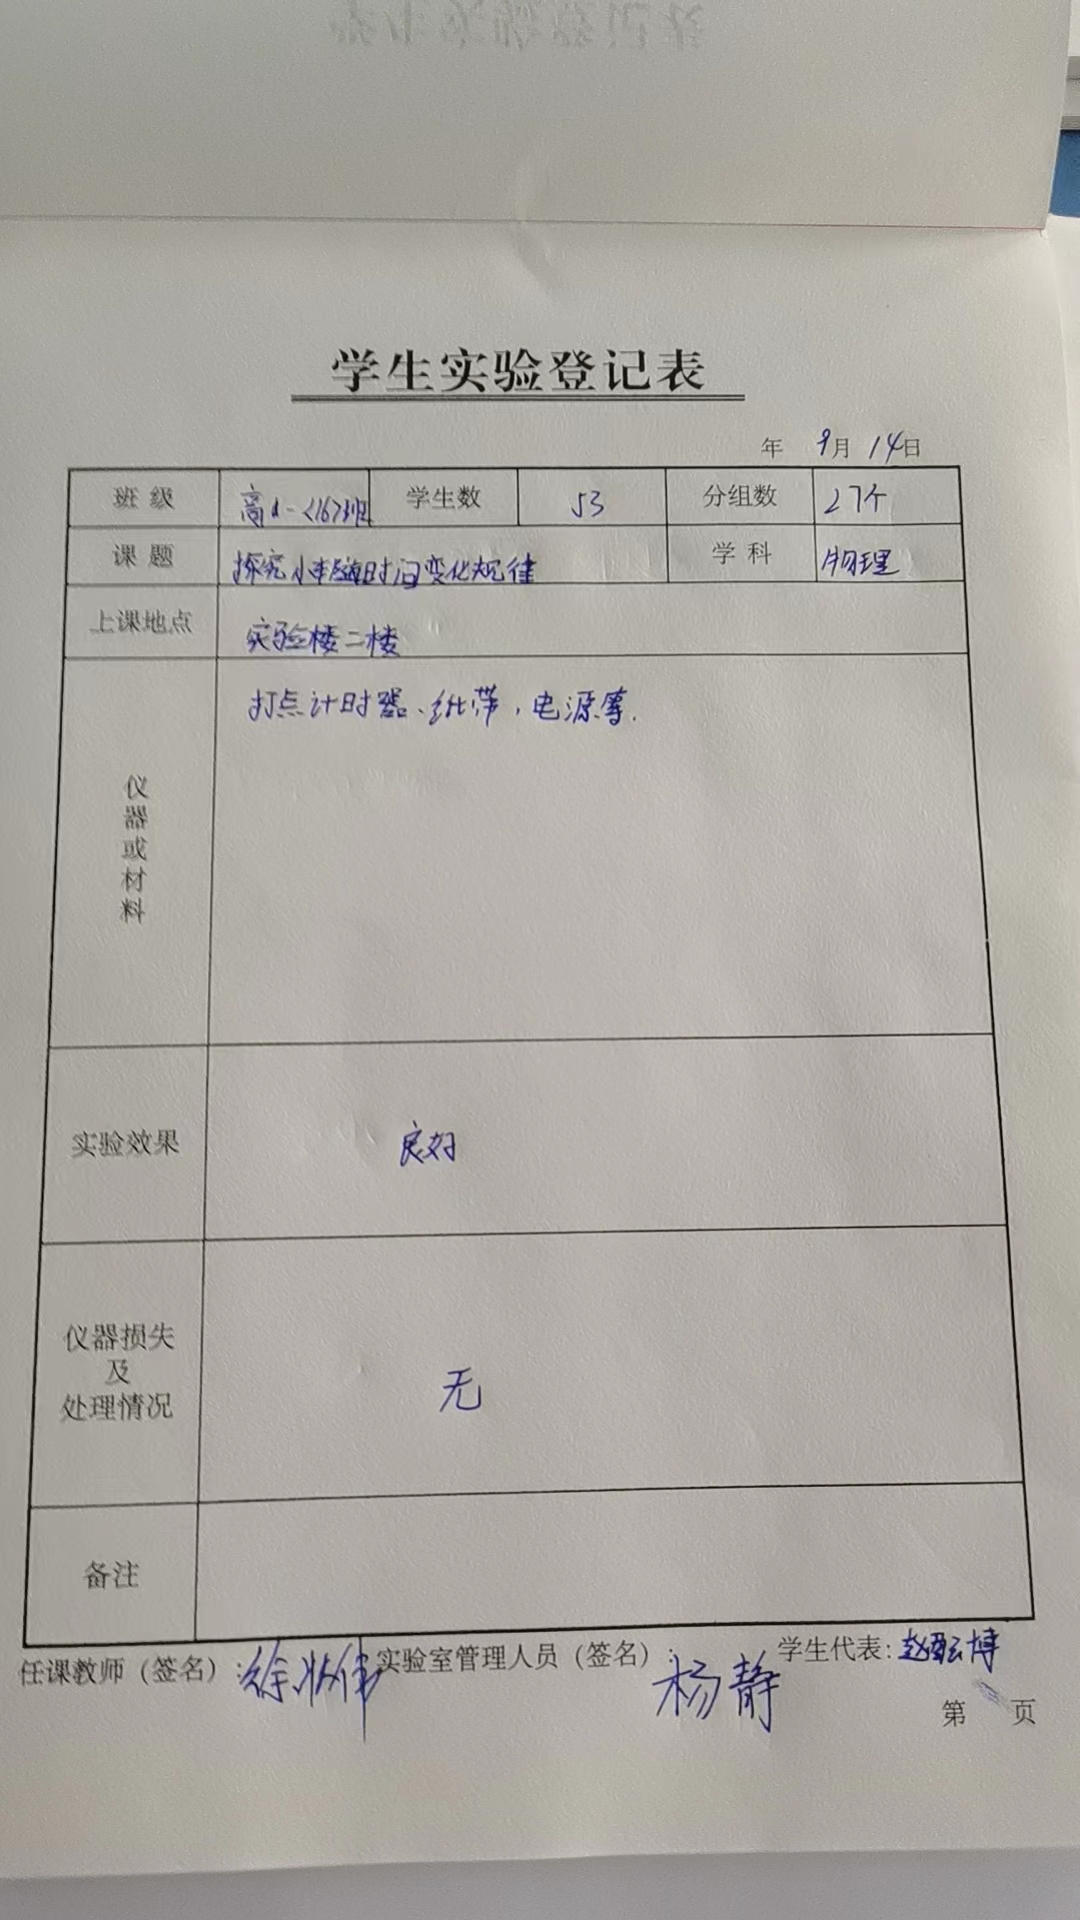 学生实验登记表
年 9月 14日
班 级 高一<16>班 学生数 53 分组数 27个
课 题 探究小车随时间变化规律 学 科 物理
上课地点 实验楼二楼
仪器或材料 打点计时器、纸带，电源等.
实验效果 良好
仪器损失
及
处理情况
无
备注
任课教师（签名）：徐 伟 实验室管理人员（签名）：杨静 学生代表：赵 博
第 页